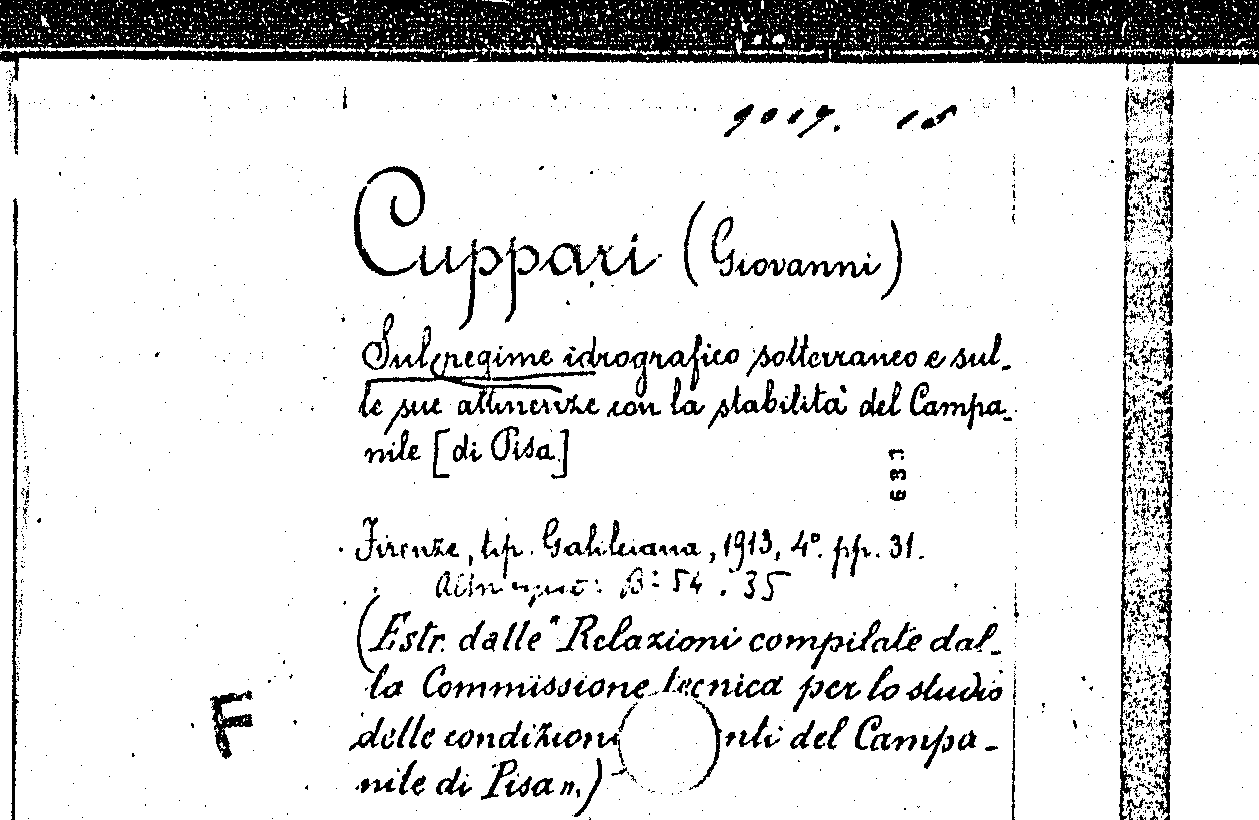 9017. 18
Cuppari (Giovanni)
Sul regime idrografico sotterraneo e sul-
le sue attinenze con la stabilità del Campa-
nile [di Pisa]
631
Firenze, tip. Galileiana, 1913, 4°. pp. 31.
B: 54. 35
(Estr. dalle "Relazioni compilate dal-
la Commissione tecnica per lo studio
delle condizioni nti del Campa-
nile di Pisa".)
F